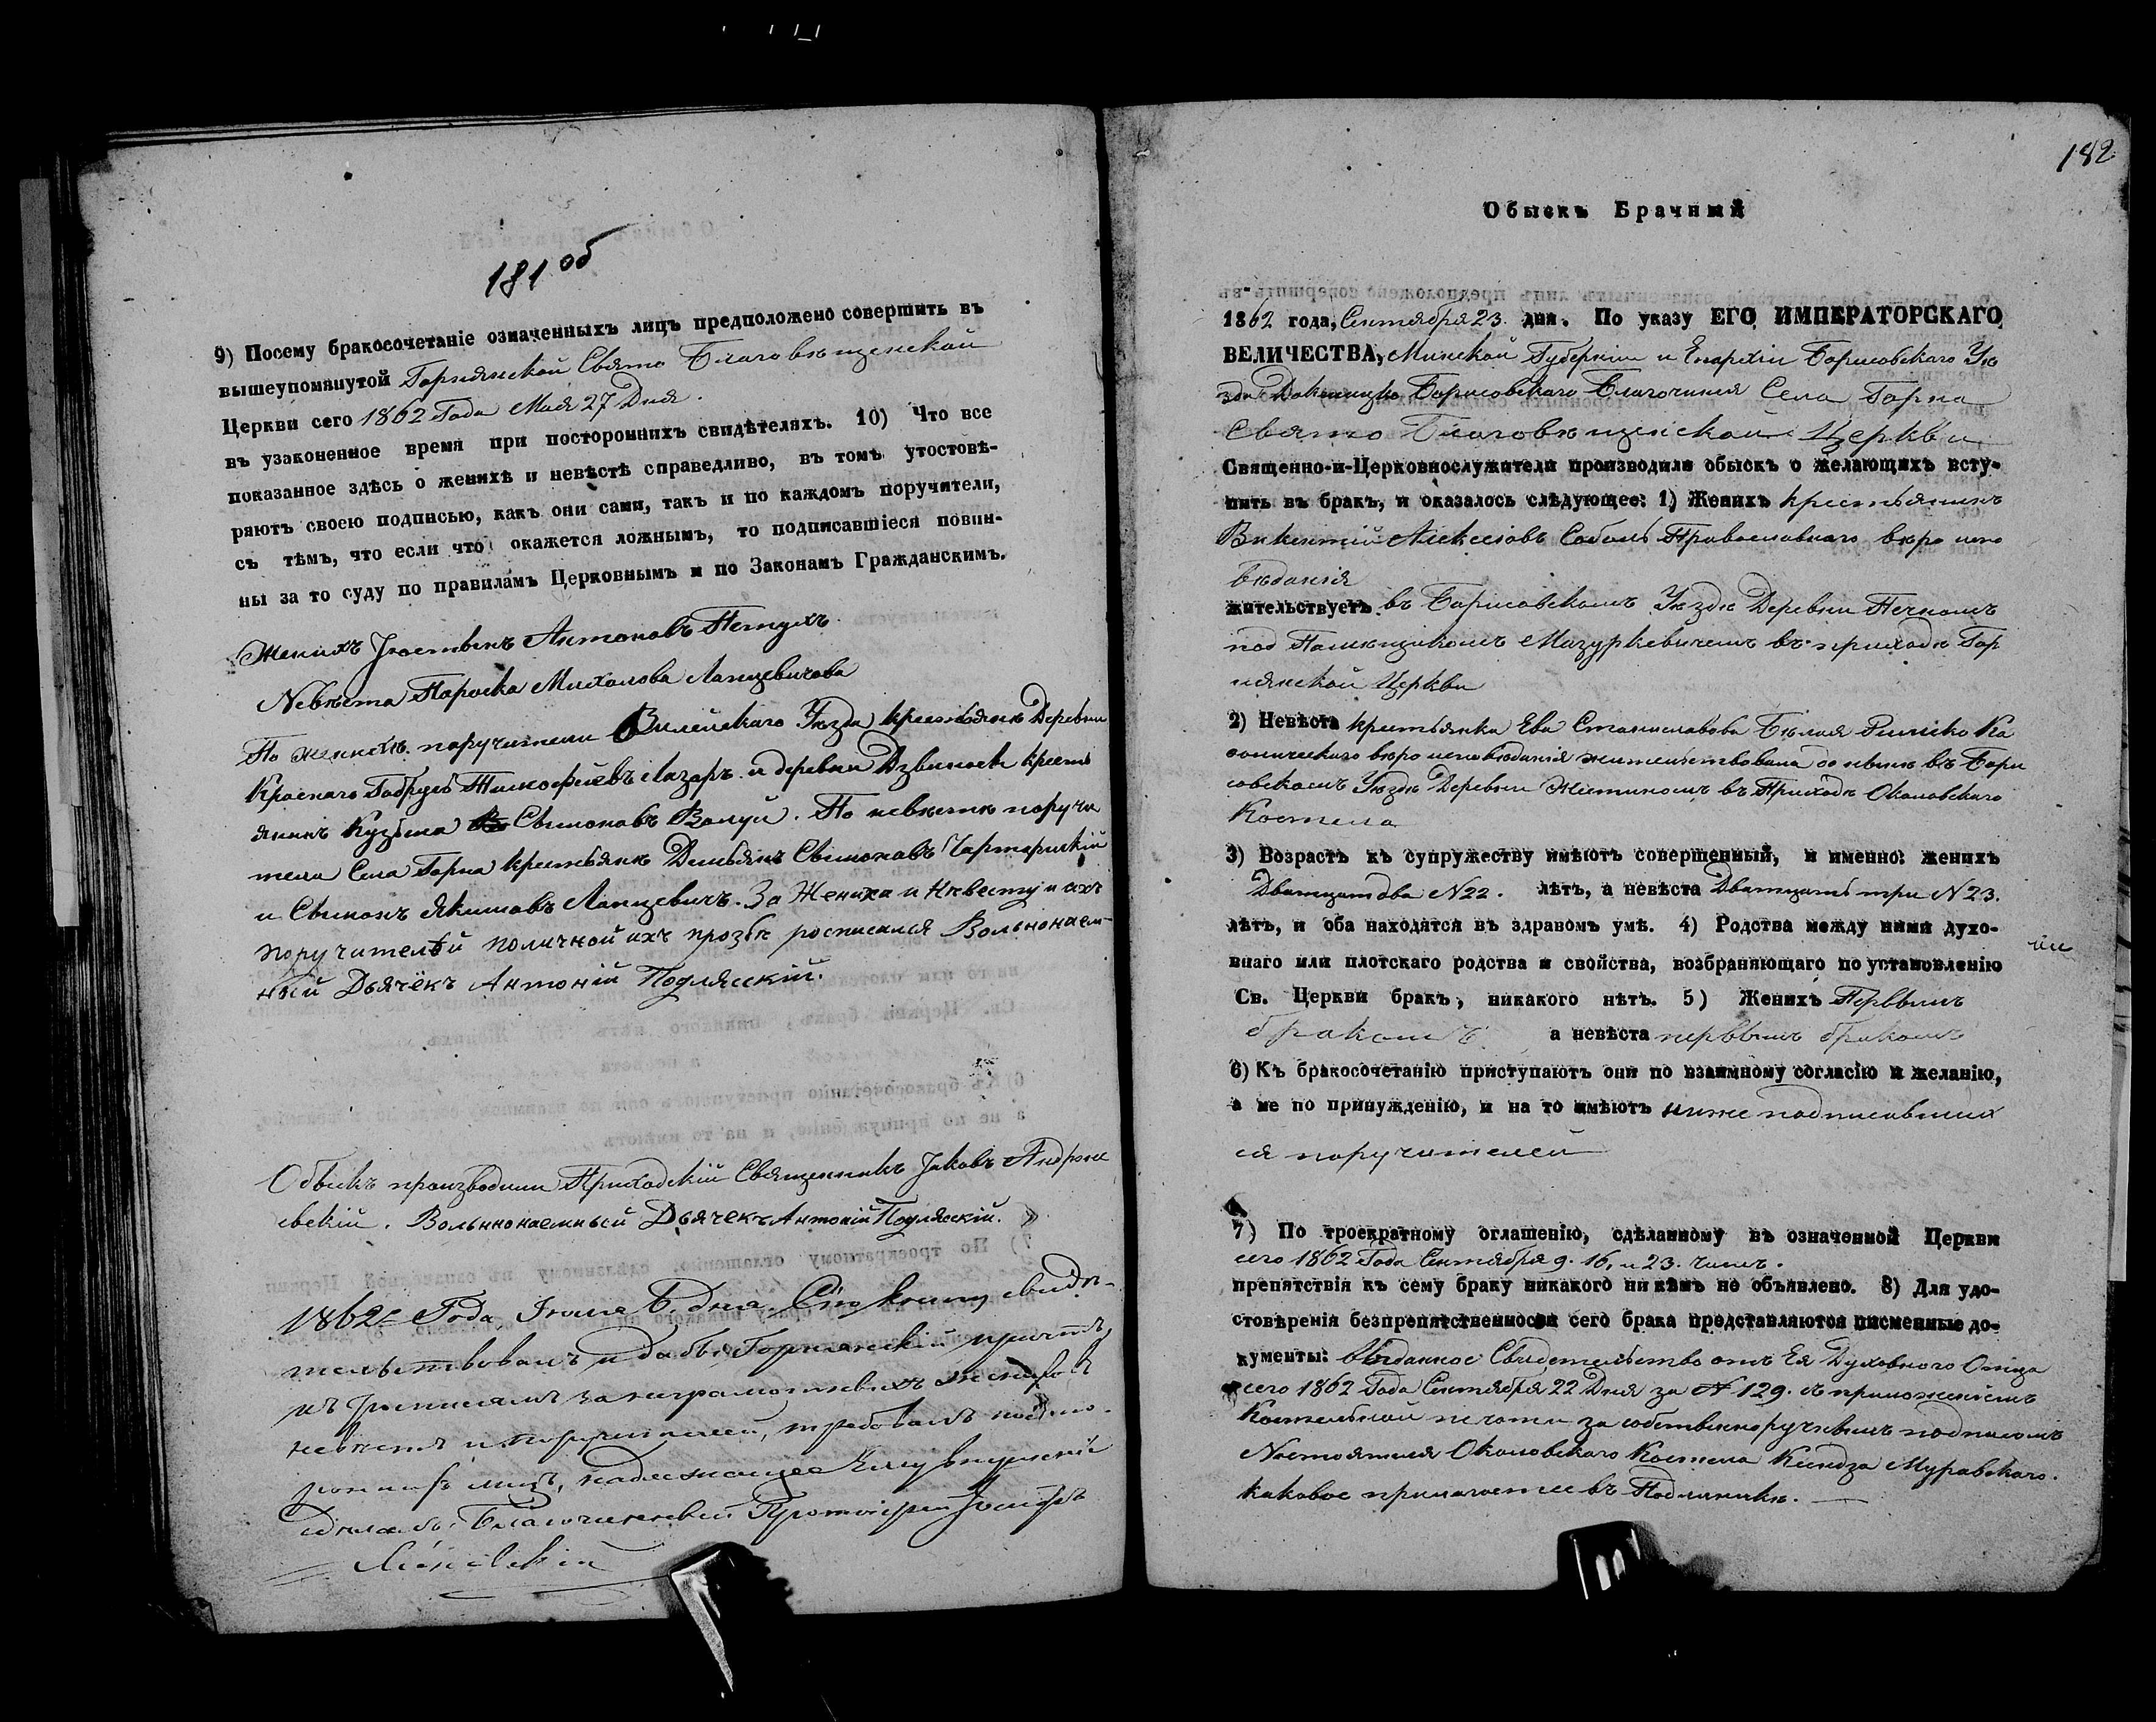 181 об
9) Посему бракосочетаніе означенныхъ лицъ предположено совершить въ
вышеупомянутой Горнянской Свято Благовѣщенской
Церкви сего 1862 Года Мая 27 Дня.
въ узаконенное время при постороннихъ свидѣтеляхъ. 10) Что все
показанное здѣсь о женихѣ и невѣстѣ справедливо, въ томъ утостовѣ-
ряютъ своею подписью, какъ они сами, такъ и по каждомъ поручители,
съ тѣмъ, что если что окажется ложнымъ, то подписавшіеся повин-
ны за то суду по правиламъ Церковнымъ и по Законамъ Гражданскимъ.
Женихъ Антоновъ Петухъ
Невѣста Михалова Лапцевичова
По женихѣ поручители Вилейскаго Уѣзда крестьянѣ Деревни
Краснаго Габруль Тимофѣевъ Лазарь и деревни Дзвиноски кресть
янинъ Кузьма Свмоновъ Валуй. По невѣстѣ поручи
тели Села Горна крестьянѣ Демьянъ Свмоновъ
и Свмонъ Якимовъ Лапцевичъ. За Жениха и Нѣвесту и ихъ
поручителѣй поличной ихъ прозбѣ росписался Вольнонаем-
ный Дьячёкъ Антоній Подлясскій.
Обыскъ производили Приходскій Священникъ Іаковъ
евскій. Вольнонаемный Дьячекъ Антоній Подлясскій.
1862 Года, Іюня 6 дня. Сію книгу свидѣ-
тельствовалъ и дабы Горнянскій причтъ
не росписалъ за неграмотныхъ жениховъ
невѣстъ и поручителей, требовалъ посто-
роннихъ лицъ, надлежащее ему внушеніе
сдѣлалъ. Благочинный Протоіерей Іосифъ
182
Обыскъ Брачный
1862 года, Сентября 23. дня. По указу ЕГО ИМПЕРАТОРСКАГО
ВЕЛИЧЕСТВА, Минской Губерніи и Епархіи Борисовскаго Уѣ
зда Докшицко Борисовскаго Благочинія Села Горна
Свято Благовѣщенской Церкви
Священно-и-Церковнослужители производили обыскъ о желающихъ всту-
пить въ бракъ, и оказалось слѣдующее: 1) Женихъ крестьянинъ
Викентій Алексіовъ Соболь Православнаго вѣро испо
вѣданія
жительствуетъ въ Борисовскомъ Уѣздѣ Деревни Печномъ
под Помѣщикомъ Мазуркевичемъ въ приходѣ Гор
нянской Церкви
2) Невѣста крестьянка Ева Станиславова Бѣлая Римско Ка
толическаго вѣроисповѣданія жительствовала до нынѣ въ Бори
совскомъ Уѣздѣ Деревни Жетиномъ въ Приходѣ Околовскаго
Костела
3) Возрастъ къ супружеству имѣютъ совершенный, и именно: женихъ
Дватцатдва N 22. лѣтъ, а невѣста Дватцать три N 23.
лѣтъ, и оба находятся въ здравомъ умѣ. 4) Родства между ними духо-
внаго или плотскаго родства и свойства, возбраняющаго по установленію
Св. Церкви бракъ, никакого нѣтъ. 5) Женихъ Первымъ
бракомъ а невѣста первымъ бракомъ
6) Къ бракосочетанію приступаютъ они по взаимному согласію и желанію,
а не по принужденію, и на то имѣютъ ниже подписавших
ся поручителей
7) По троекратному оглашенію, сдѣланному въ означенной Церкви
сего 1862 Года Сентября 9. 16. и 23. чиселъ.
препятствія къ сему браку никакого ни кѣмъ не объявлено. 8) Для удо-
стовѣренія безпрепятственности сего брака представляются письменные до-
кументы: выданное Свидетельство отъ Ея Духовного Отца
сего 1862 Года Сентября 22 Дня за № 129. съ приложеніемъ
Костельной печати за собственноручнымъ подписомъ
Настоятеля Околовскаго Костела Ксендза Муравскаго.
каковое прилагается въ Подлинникѣ.